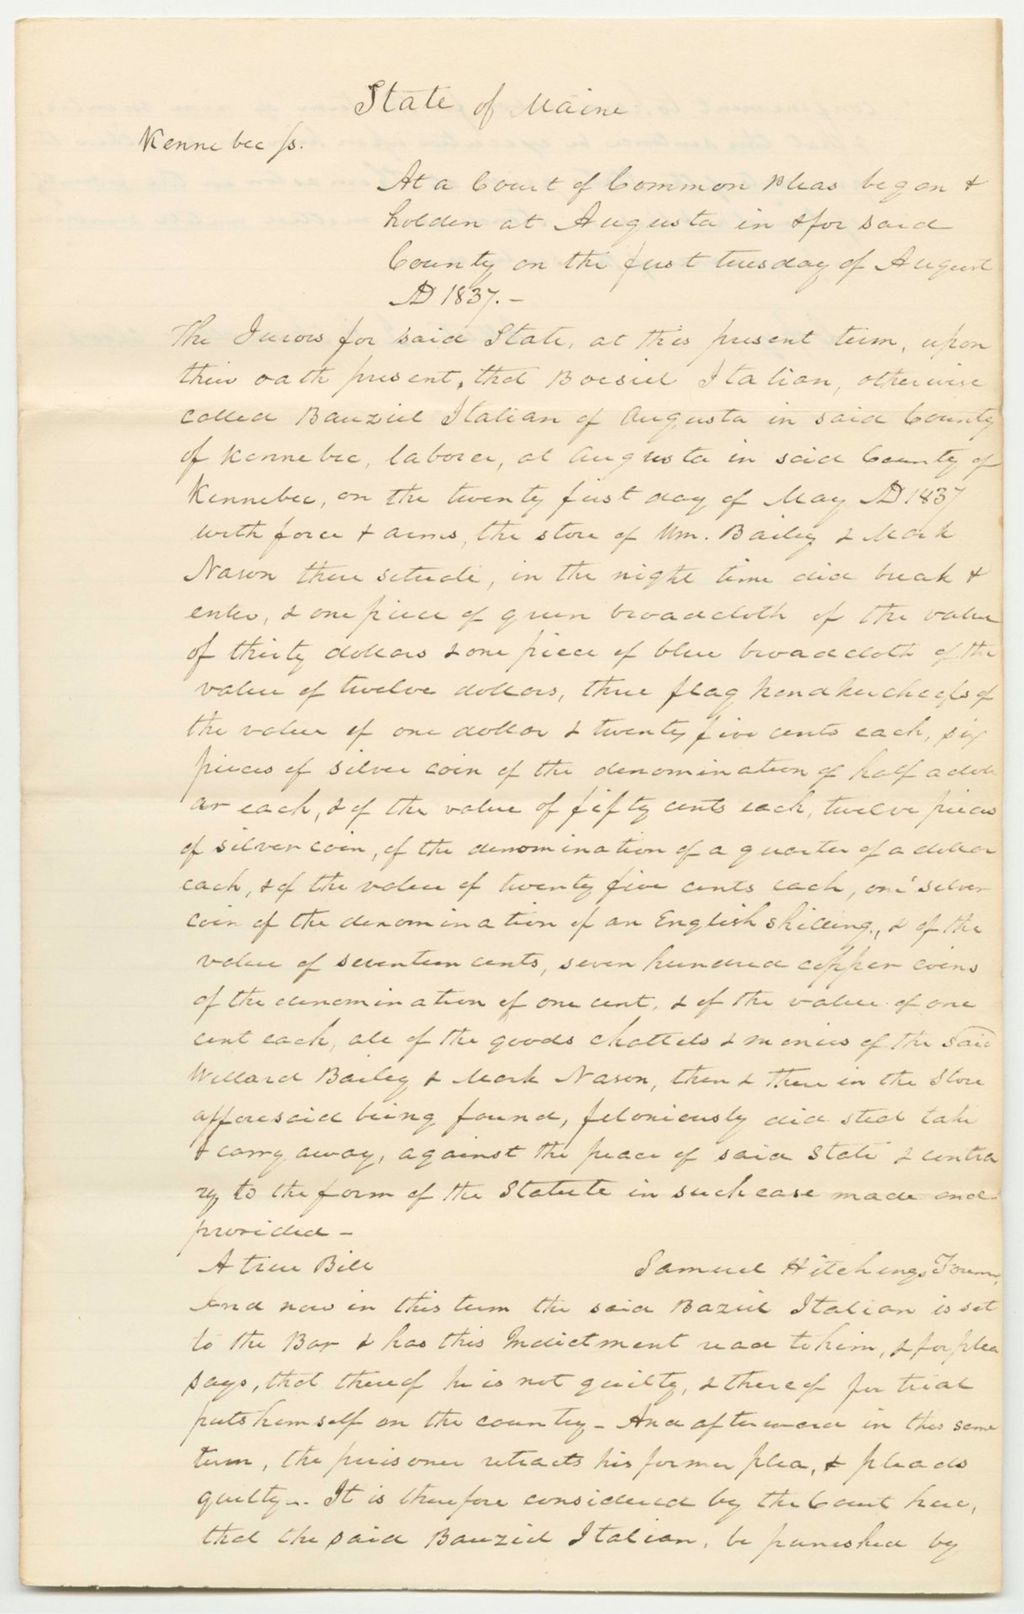 State of Maine
Kennebec ss.
At a Court of Common Pleas began &
holden at Augusta in & for said
County on the first tuesday of August
AD 1837.-
The Jurors for said State, at this present term, upon
their oath present, that Boesiel Italian, otherwise
called Bauziel Italian of Augusta in said County
of Kennebec, laborer, at Augusta in said County of
Kennebec, on the twenty first day of May AD 1837
with force & arms, the store of Wm. Bailey & Mark
Nason there situate, in the night time did break &
enter, & one piece of green broadcloth of the value
of thirty dollars & one piece of blue broadcloth of the
value of twelve dollars, three flag handkerchiefs of
the value of one dollar & twenty five cents each, six
pieces of silver coin of the denomination of half a doll
ar each, & of the value of fifty cents each, twelve pieces
of silver coin, of the denomination of a quarter of a dollar
each, & of the value of twenty five cents each, one silver
coin of the denomination of an English shilling, & of the
value of seventeen cents, seven hundred copper coins
of the denomination of one cent, & of the value of one
cent each, all of the goods chattels & monies of the said
Willard Bailey & Mark Nason, then & there in the Store
afforesaid being found, feloniously did steal take
& carry away, against the peace of said State & contra
ry to the form of the Statute in such case made and
provided -
A true Bill Samuel Hitchings Forem,
And now in this term the said Baziel Italian is set
to the Bar & has this Indictment read to him, & for plea
says, that thereof he is not guilty, & thereof for trial
puts himself on the country - And afterward in this same
term, the prisoner retracts his former plea, & pleads
guilty-. It is therefore considered by the Court here,
that the said Bauziel Italian, be punished by